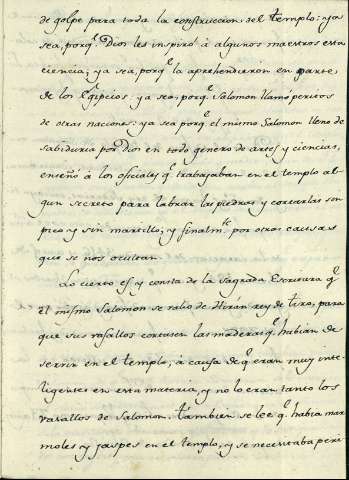 de golpe para toda la construccion del templo: ya
sea, porq.e Dios les inspiró á algunos maestros esta
ciencia; ya sea, porq.e la aprehendieron en parte
de los Egipcios: ya sea, porq.e Salomon llamó peritos
de otras naciones: ya sea porq.e el mismo Salomon lleno de
sabiduria por Dios en todo genero de artes y ciencias,
enseñó á los oficiales q.e trabajaban en el templo al-
gun secreto para labrar las piedras y cortarlas sin
pico y sin martillo; y finalm.te por otras causas
que se nos ocultan.
Lo cierto es, y consta de la Sagrada Escritura q.e
el mismo Salomon se valio de Hirán rey de tiro, para
que sus vasallos cortasen las maderas q.e habian de
servir en el templo, á causa de q.e eran muy inte-
ligentes en esta materia, y no lo eran tanto los
vasallos de Salomon. tambien se lee q.e habia mar
moles y jaspes en el templo, y se necesitaba peri